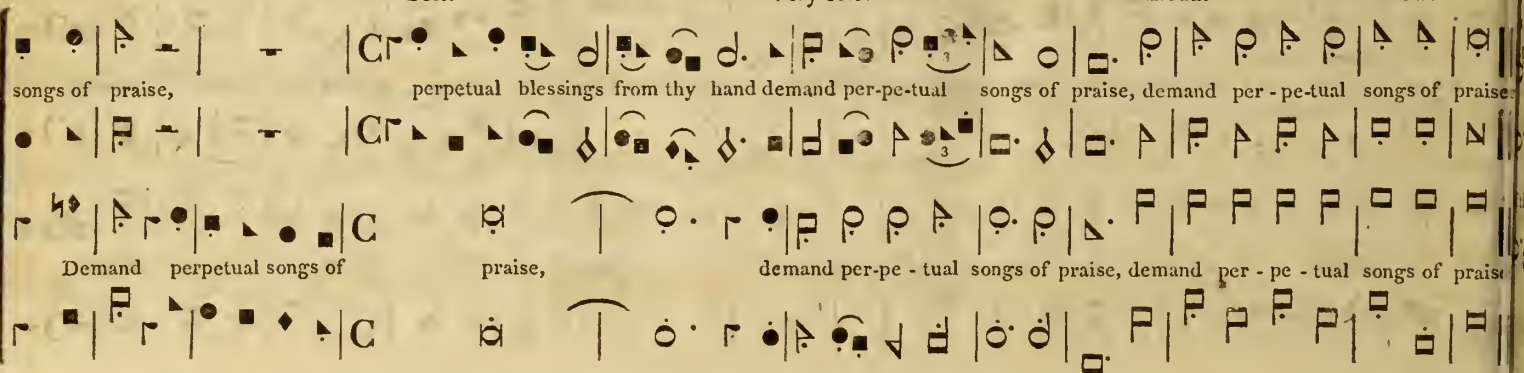 songs of praise, perpetual blessings from thy hand demand per-pe-tual songs of praise, demand per - pe-tual songs of praise.
3
3
Demand perpetual songs of praise, demand per-pe - tual songs of praise, demand per - pe - tual songs of praise